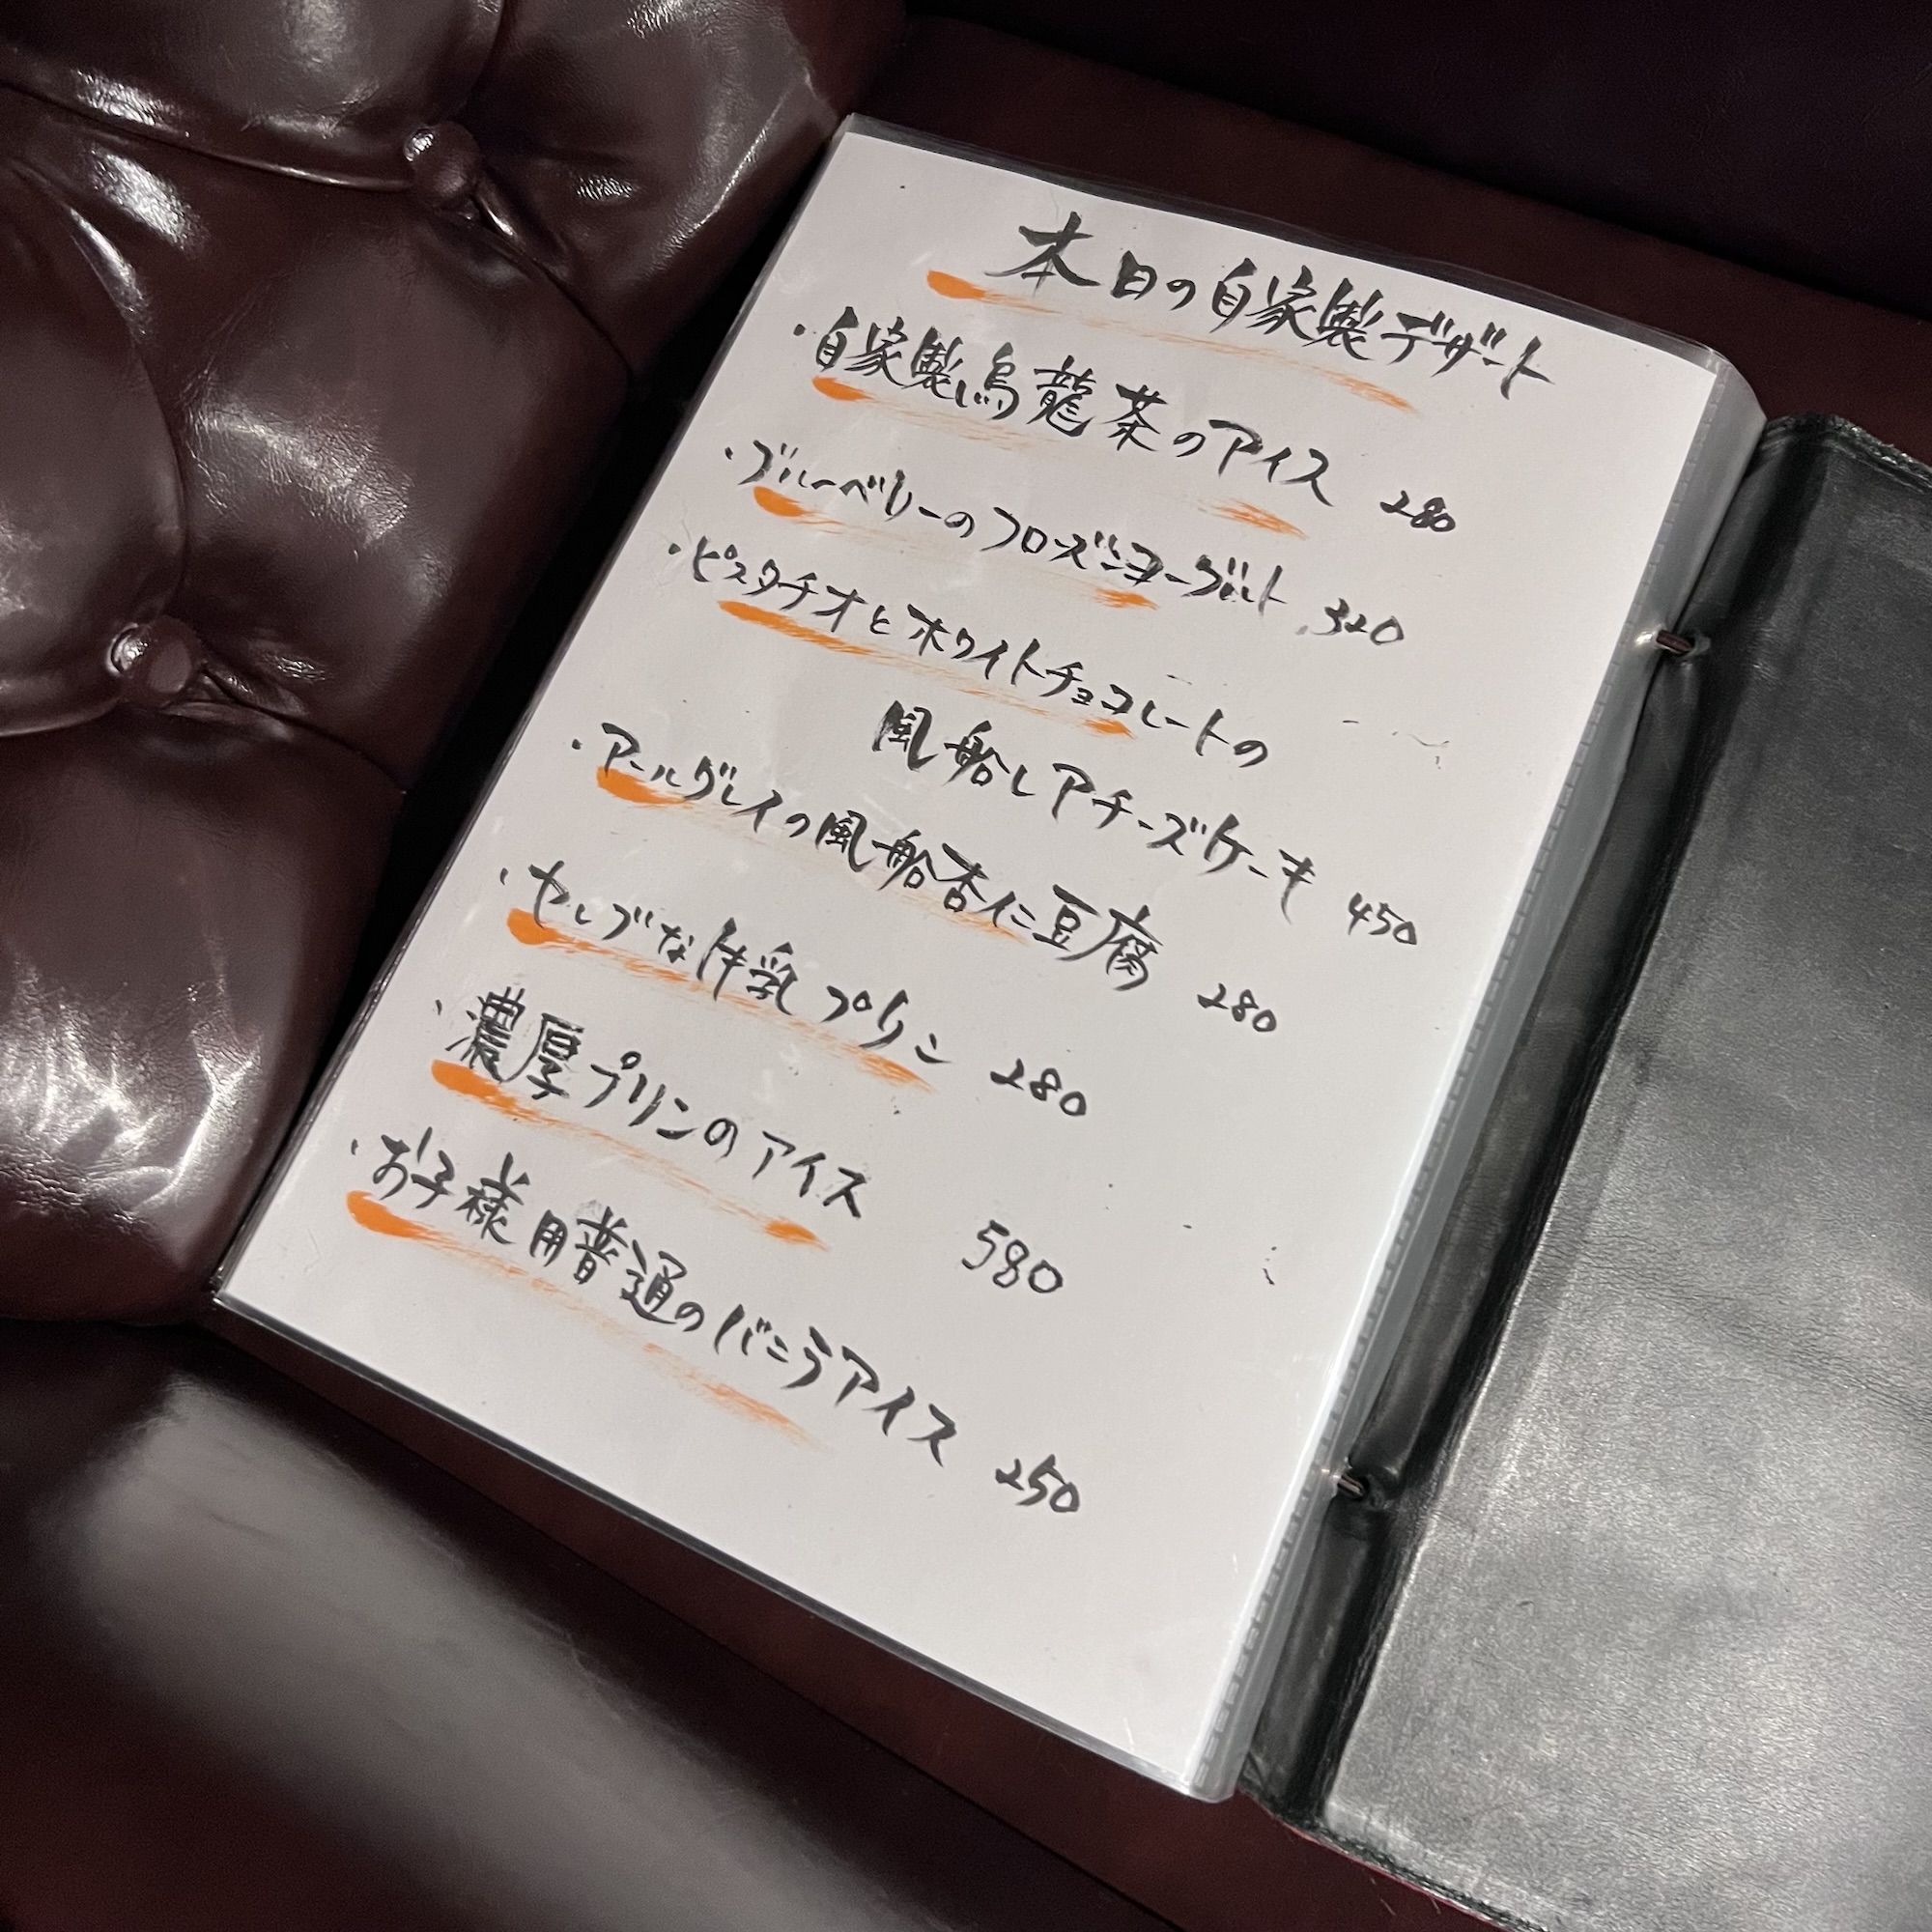 本日の自家製デザート
・自家製烏龍茶のアイス 280
・ブルーベリーのフローズンヨーグルト 320
・ピスタチオとホワイトチョコレートの
風船レアチーズケーキ 450
・アールグレイの風船杏仁豆腐 280
・セレブな牛乳プリン 280
・濃厚プリンのアイス 580
・お子様用普通のバニラアイス 250